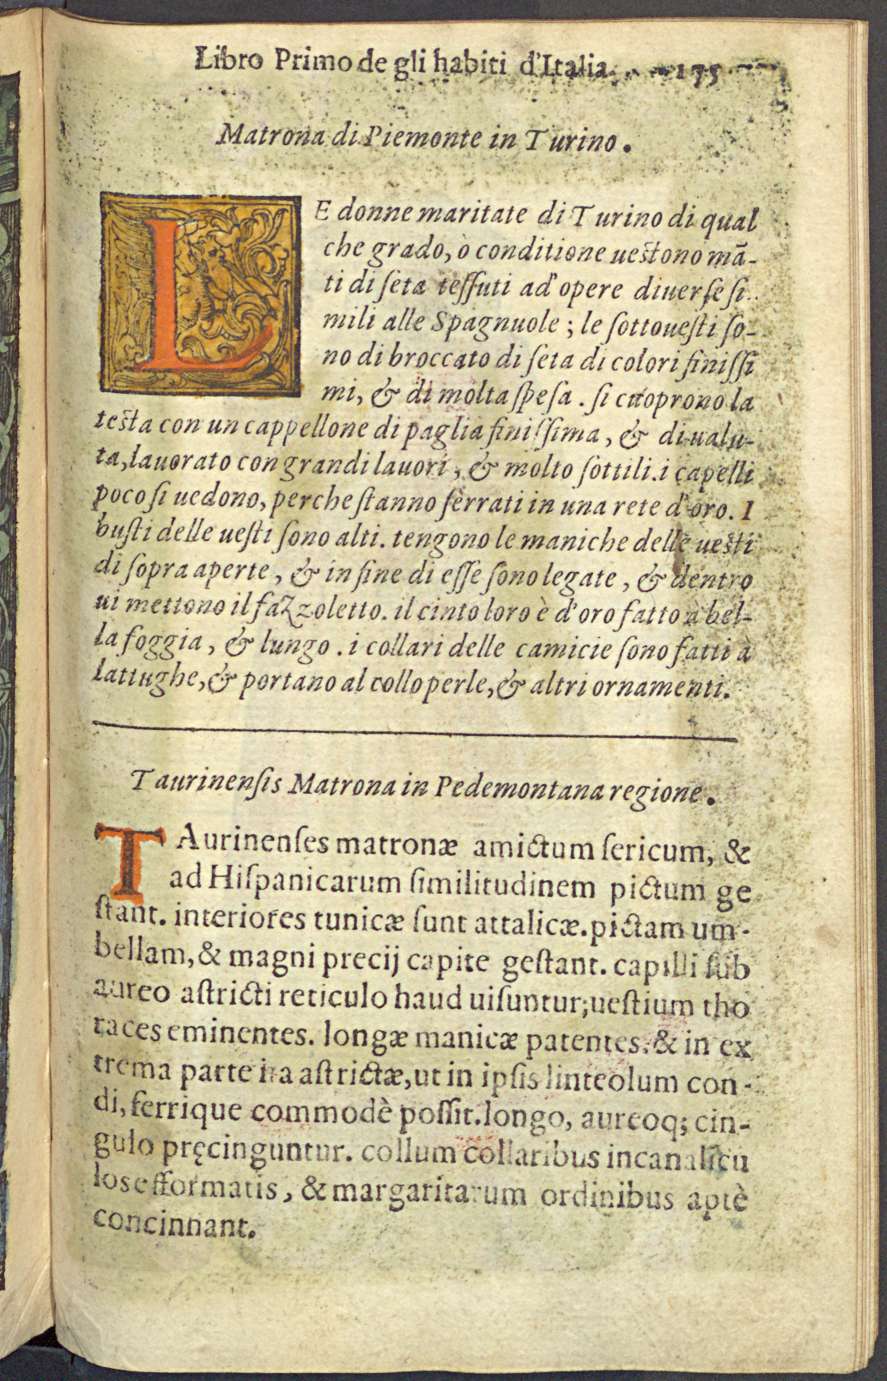 Libro Primo de gli habiti d'Italia. 175
Matrona di Piemonte in Turino.
LE donne maritate di Turino di qual
che grado, ò conditione uestono mã-
ti di seta tessuti ad' opere diuerse si
mili alle Spagnuole ; le sottouesti so-
no di broccato di seta di colori finissi
mi, & di molta spesa . si cuoprono la
testa con un cappellone di paglia finissima , & di ualu-
ta, lauorato con grandi lauori , & molto sottili. i capelli
poco si uedono, perche stanno serrati in una rete d'oro. I
busti delle uesti sono alti. tengono le maniche delle uesti
di sopra aperte , & in fine di esse sono legate , & dentro
ui mettono il fazzoletto. il cinto loro è d'oro fatto a bel-
la foggia , & lungo . i collari delle camicie sono fatti à
lattughe, & portano al collo perle, & altri ornamenti.
Taurinensis Matrona in Pedemontana regione.
TAurinenses matronæ amictum sericum, &
ad Hispanicarum similitudinem pictum ge
stant. interiores tunicæ sunt attalicæ. pictam um-
bellam, & magni precij capite gestant. capilli sub
aureo astricti reticulo haud uisuntur; uestium tho
races eminentes. longæ manicæ patentes. & in ex
trema parte ita astrictæ, ut in ipsis linteolum con-
di, ferrique commodè possit. longo, aureoq; cin-
gulo pręcinguntur. collum collaribus in canalicu
los efformatis, & margaritarum ordinibus aptè
concinnant.